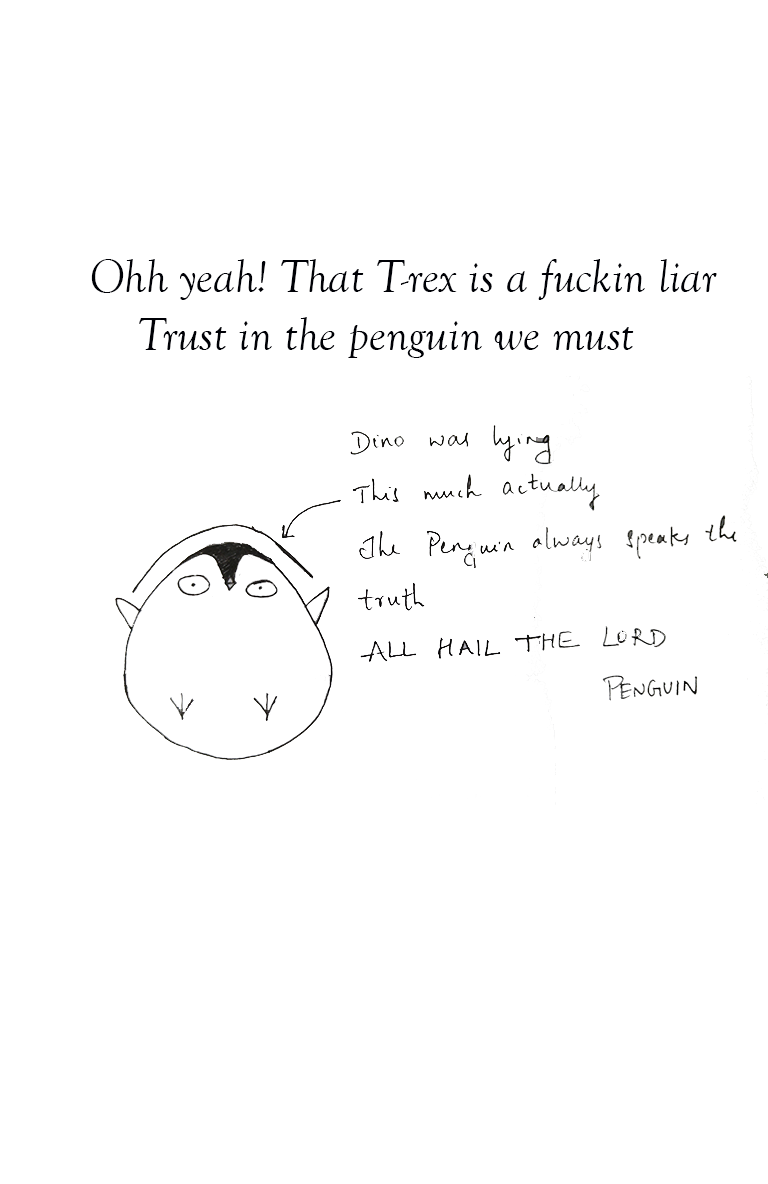 Ohh yeah! That T-rex is a fuckin liar
Trust in the penguin we must
Dino was lying
This much actually
The Penguin always speaks the
truth
ALL HAIL THE LORD
PENGUIN